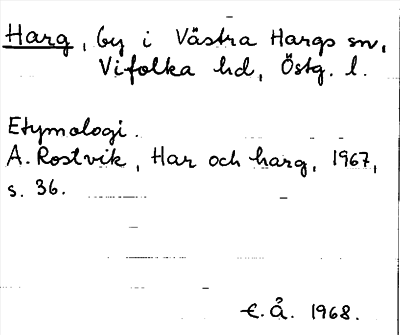 Harg, by i Västra Hargs sn,
Vifolka hd, Östg. l.
Etymologi.
A. Rostvik, Har och harg, 1967,
s. 36.
E. Å. 1968.